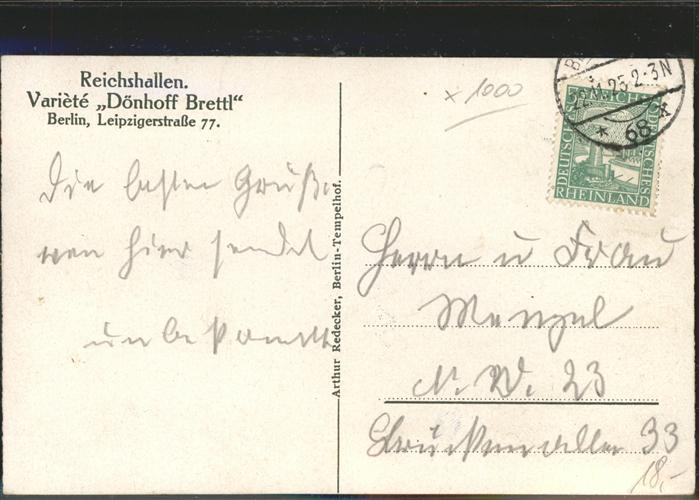 Reichshallen.
Varièté „Dönhoff Brettl“
Berlin, Leipzigerstraße 77.
Die besten Grüße
von hier sendet
unbekannt
Arthur Redecker, Berlin-Tempelhof.
x 1000
25.2-3N
* 68 *
5 DEUTSCHES REICH 5
DEUTSCHES
RHEINLAND
Herrn u Frau
Menzel
N. W. 23
Brückenallee 33
18,-